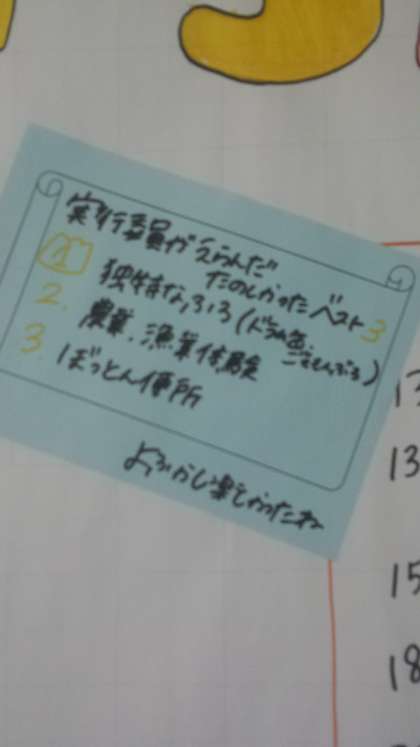 実行委員がえらんだ
たのしかったベスト3
1. 独特なふろ(ドラム缶・ごえもんぶろ)
2. 農業、漁業体験
3. ぼっとん便所
よふかし楽しかったね
13
15
18